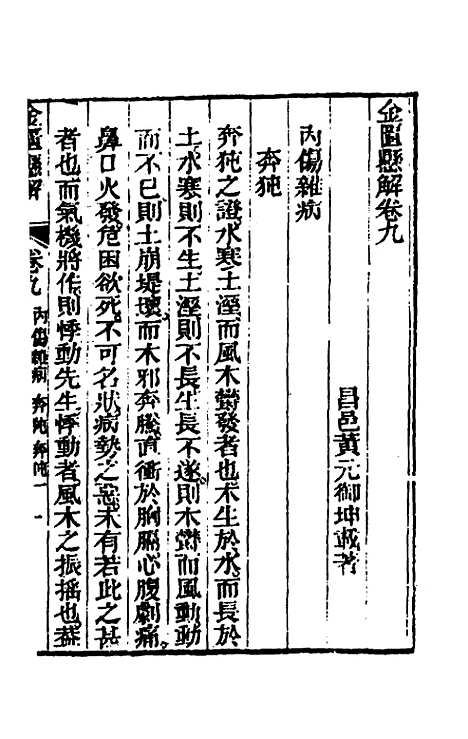 金匱懸解卷九
昌邑黃元御坤載著
內傷雜病
奔㹠
奔㹠之證水寒土溼而風木鬱發者也木生於水而長於
土水寒則不生土溼則不長生長不遂則木鬱而風動動
而不已則土崩堤壞而木邪奔騰直衝於胸膈心腹劇痛
鼻口火發危困欲死不可名狀病勢之惡未有若此之甚
者也而氣機將作則悸動先生悸動者風木之振搖也蓋
金匱懸解 卷九 內傷雜病 奔㹠 奔㹠 一